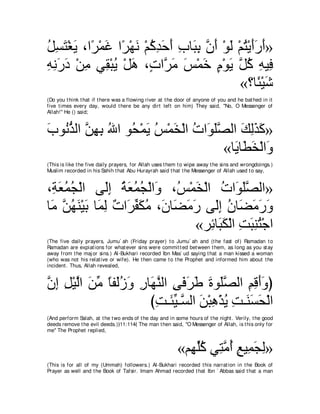 «أَرَأَيْتُمْ لَوْ أَنَّ بِبَابِ أَحَدِكُمْ نَهْرًا غَمْرًا، يَغْتَسِلُ
فِيهِ كُلَّ يَوْمٍ خَمْسَ مَرَّاتٍ، هَلْ يُبْقِي مِنْ دَرَنِهِ
شَيْئًا؟»
(Do you think that if there was a flowing river at the door of anyone of you and he bathed in it five times every day, would there be any dirt left on him) They said, "No, O Messenger of Allah!'' He () said;
«كَذَلِكَ الصَّلَوَاتُ الْخَمْسُ يَمْحُو اللهُ بِهِنَّ الذُّنُوبَ
وَالْخَطَايَا»
(This is like the five daily prayers, for Allah uses them to wipe away the sins and wrongdoings.) Muslim recorded in his Sahih that Abu Hurayrah said that the Messenger of Allah used to say,
«الصَّلَوَاتُ الْخَمْسُ، وَالْجُمُعَةُ إِلَى الْجُمُعَةِ،
وَرَمَضَانُ إِلَى رَمَضَانَ، مُكَفِّرَاتٌ لِمَا بَيْنَهُنَّ مَا
اجْتُنِبَتِ الْكَبَائِرُ»
(The five daily prayers, Jumu`ah (Friday prayer) to Jumu`ah and (the fast of) Ramadan to Ramadan are expiations for whatever sins were committed between them, as long as you stay away from the major sins.) Al-Bukhari recorded Ibn Mas`ud saying that a man kissed a woman (who was not his relative or wife). He then came to the Prophet and informed him about the incident. Thus, Allah revealed,
(وَأَقِمِ الصَّلَوةَ طَرَفَىِ النَّهَارِ وَزُلَفًا مِّنَ الَّيْلِ إِنَّ
الْحَسَنَـتِ يُذْهِبْنَ السَّـيِّئَـتِ)
(And perform Salah, at the two ends of the day and in some hours of the night. Verily, the good deeds remove the evil deeds.)(11:114( The man then said, "O Messenger of Allah, is this only for me'' The Prophet replied,
«لِجَمِيعِ أُمَّتِي كُلِّهِمْ»
(This is for all of my (Ummah) followers.) Al-Bukhari recorded this narration in the Book of Prayer as well and the Book of Tafsir. Imam Ahmad recorded that Ibn `Abbas said that a man